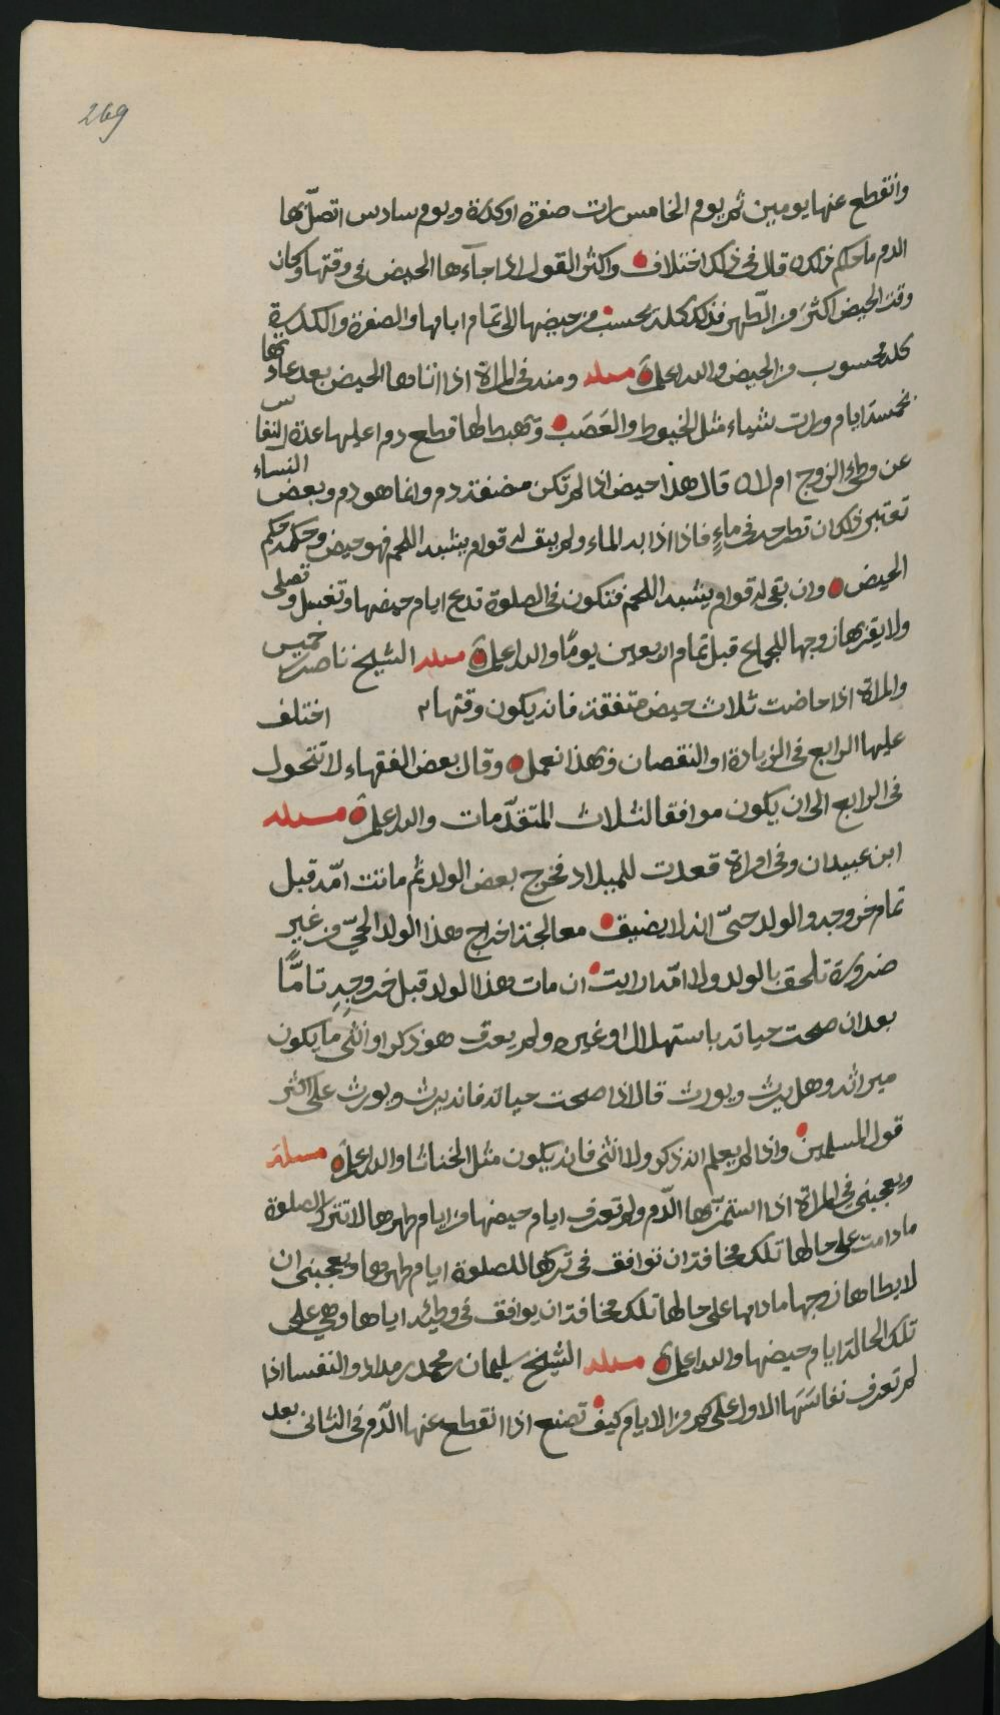 269
وانقطع عنها يومين ثم يوم الخامس رات صفرة او كدرة ويوم سادس اتصل بها
الدم ما حكم ذلك قال في ذلك اختلاف واكثر القول اذا جآءها الحيض في وقتها وكان
وقت الحيض اكثر من الطهر فذلك كله يحسب من حيضها الى تمام ايامها والصفرة والكدرة
كله محسوب من الحيض والله اعلم مسئلة ومنه في المراة اذا اتاها الحيض بعد عادتها
بخمسة ايام ورات شياء مثل الخيوط والعَصَب وتهبط لها قطع دم اعليها عدة النفاس
عن وطئ الزوج ام لا قال هذا حيض اذا لم تكن مضغة دم وانما هو دم وبعض النساء
تعتبر ذلك ان تطرحه في ماءٍ فاذا اذابه الماء ولم يبق له قوام يشبه اللحم فهو حيض وحكمه حكم
الحيض وان بقي له قوام يشبه اللحم فتكون في الصلوة تدع ايام حيضها وتغسل وتصلي
ولا يقربها زوجها للجماع قبل تمام اربعين يومًا والله اعلم مسئلة الشيخ ناصر بن خميس
والمراة اذا حاضت ثلاث حيض متفقة فانه يكون وقتها اختلف
عليها الرابع في الزيادة او النقصان فبهذا نعمل وقال بعض الفقهاء لا تتحول
في الرابع الى ان يكون موافقا لثلاث المتقدّمات والله اعلم مسئلة
ابن عبيدان وفي امراة قعدت للميلاد فخرج بعض الولد ثم ماتت امّه قبل
تمام خروجه والولد حيّ انه لا يضيق معالجة اخراج هذا الولد الحيّ من غير
ضرورة تلحق بالولد ولا امّه ارايت ان مات هذا الولد قبل خروجِهِ تامًّا
بعد ان صحت حياته باستهلال او غيره ولم يعرف هو ذكر او انثى ما يكون
ميراثه وهل يرث ويورث قال اذا صحت حياته فانه يرث ويورث على اكثر
قول المسلمين واذا لم يعلم انه ذكر ولا انثى فانه يكون مثل الخناثا والله اعلم مسئلة
ويعجبني في المراة اذا استمرّ بها الدّم ولم تعرف ايام حيضها من ايام طهرها لا تترك الصلوة
ما دامت على حالها تلك مخافة ان توافق في تركها للصلوة ايام طهرها ويعجبني ان
لا يطاها زوجها ما دامها على حالها تلك مخافة ان يوافق في وطيه اياها وهي على
تلك الحالة ايام حيضها والله اعلم مسئلة الشيخ سليمان بن محمد بن مداد والنفسا اذا
لم تعرف نفاسَهَا الاول على كم من الايام كيف تصنع اذا انقطع عنها الدّم في الثاني بعد